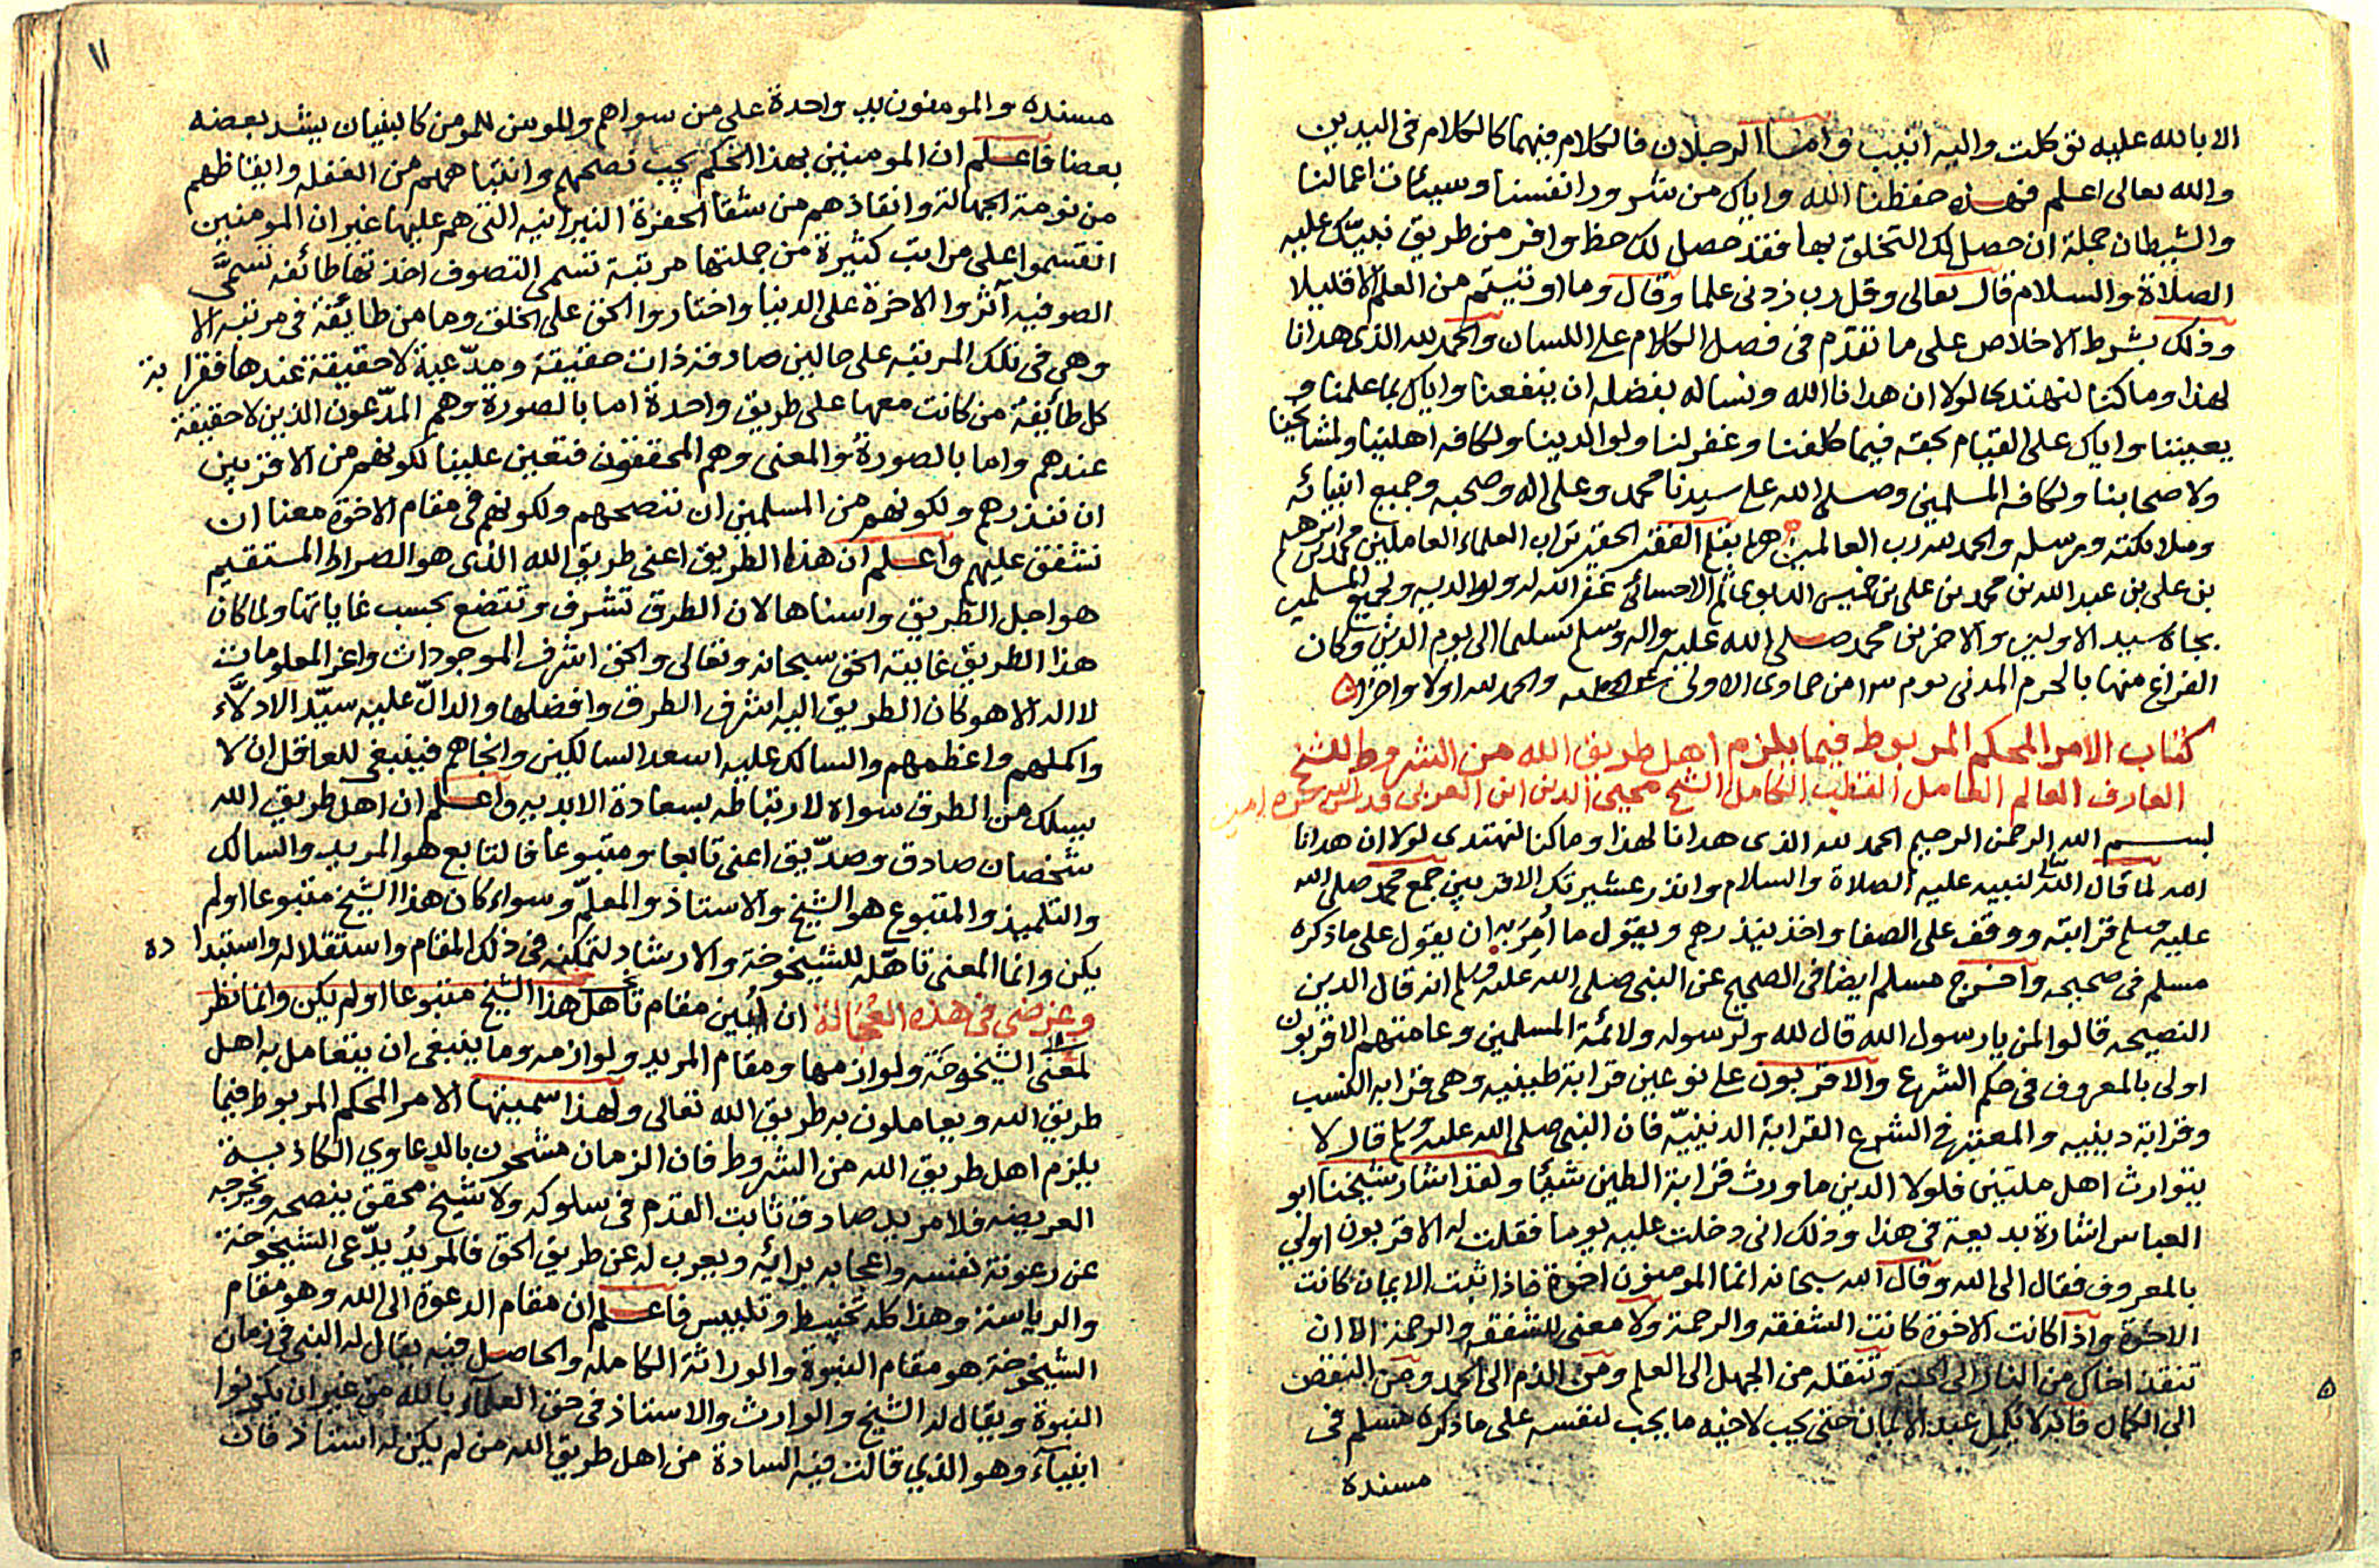 الا بالله عليه توكلت واليه انيب واما الرجلان فالكلام فيهما كالكلام فى اليدين
والله تعالى اعلم فهذه حفظنا الله واياك من شرور انفسنا وسيئات اعمالنا
والشيطان جملة ان حصل لك التخلق بها فقد حصل لك حظ وافر من طريق نبيك عليه
الصلاة والسلام قال تعالى وقل رب زدنى علما وقال وما اوتيتم من العلم الا قليلا
وذلك بشرط الاخلاص على ما تقدم فى فصل الكلام على اللسان والحمد لله الذى هدانا
لهذا وما كنا لنهتدى لولا ان هدانا الله ونساله بفضله ان ينفعنا واياك بما علمنا و
يعيننا واياك على القيام بحقه فيما كلفنا وغفر لنا ولوالدينا ولكافه اهلينا ولمشايخنا
ولاصحابنا ولكافه المسلمين وصلى الله على سيدنا محمد وعلى اله وصحبه وجميع انبيائه
وملائكته ورسله والحمد لله رب العالمين بقلم الفقير الحقير تراب العلماء العاملين محمد بن ابرهيم
بن على بن عبد الله بن محمد بن على بن خميس ثم الاحسائى غفر الله له ولوالديه ولجميع المسلمين
بجاه سيد الاولين والاخرين محمد صلى الله عليه واله وسلم تسليما الى يوم الدين وكان
الفراغ منها بالحرم المدنى يوم من جماوى الاولى والحمد لله اولا واخرا
كتاب الامر المحكم المربوط فيما يلزم اهل طريق الله من الشروط للشيخ
العارف العالم العامل القطب الكامل الشيخ محيى الدين ابن العربى قدس الله سره امين
بسم الله الرحمن الرحيم الحمد لله الذى هدانا لهذا وما كنا لنهتدى لولا ان هدانا
الله لما قال الله لنبيه عليه الصلاة والسلام وانذر عشيرتك الاقربين جمع محمد صلى الله
عليه وسلم قرابته ووقف على الصفا واخذ ينذرهم ويقول ما أمر به ان يقول على ما ذكره
مسلم فى صحيحه واخرج مسلم ايضا فى الصحيح عن النبى صلى الله عليه وسلم انه قال الدين
النصيحه قالوا لمن يا رسول الله قال لله ولرسوله ولائمة المسلمين وعامتهم الاقربون
اولى بالمعروف فى حكم الشرع والاقربون على نوعين قرابة طينيه وهى قرابه النسب
وقرابة دينيه والمعتبر فى الشرع القرابة الدينيّه فان النبى صلى الله عليه وسلم قال لا
يتوارث اهل ملتين فلولا الدين ما ورث قرابة الطين شيئا ولقد اشار شيخنا ابو
العباس اشارة بديعة فى هذا وذلك انى دخلت عليه يوما فقلت له الاقربون اولى
بالمعروف فقال الى الله وقال الله سبحانه انما المومنون اخوة فاذا ثبت الايمان كانت
الاخوة واذا كانت الاخوة كانت الشفقه والرحمة ولا معنى للشفقه والرحمة الا ان
تنقذ اخاك من النار الى الجنة وتنقله من الجهل الى العلم ومن الذم الى الحمد ومن النقص
الى الكمال فانه لا يكمل عبد الايمان حتى يحب لاخيه ما يحب لنفسه على ما ذكره مسلم فى
مسنده
١١
مسنده والمومنون يد واحدة على من سواهم والمومن للمومن كالبنيان يشد بعضه
بعضا فاعلم ان المومنين بهذا الحكم يجب نصحهم وانتباههم من الغفله وايقاظهم
من نومة الجهالة وانقاذهم من شفا الحفرة النيرانيه التى هم عليها غير ان المومنين
انقسموا على مراتب كثيرة من جملتها مرتبة تسمى التصوف اخذتها طائفه تسمَّى
الصوفيه آثروا الاخرة على الدنيا واختاروا الحق على الخلق وما من طائفة فى مرتبه الا
وهى فى تلك المرتبه على حالين صادقه ذات حقيقة ومدّعية لا حقيقة عندها فقرابة
كل طائفة من كانت معها على طريق واحدة اما بالصورة وهم المدّعون الذين لا حقيقة
عندهم واما بالصورة والمعنى وهم المحققون فتعين علينا لكونهم من الاقربين
ان ننذرهم ولكونهم من المسلمين ان ننصحهم ولكونهم فى مقام الاخوة معنا ان
نشفق عليهم واعلم ان هذا الطريق اعنى طريق الله الذى هو الصراط المستقيم
هو اجل الطريق واسناها لان الطرق تشرف وتتضع بحسب غاياتها ولما كان
هذا الطريق غايته الحق سبحانه وتعالى والحق اشرف الموجودات واعز المعلومات
لا اله الا هو كان الطريق اليه اشرف الطرق وافضلها والدالّ عليه سيّد الادلّاء
واكملهم واعظمهم والسالك عليه اسعد السالكين وانجاهم فينبغى للعاقل ان لا
يسلك من الطرق سواه لارتباطه بسعادة الابديه واعلم ان اهل طريق الله
شخصان صادق وصدّيق اعنى تابعا ومتبوعا فالتابع هو المريد والسالك
والتلميذ والمتبوع هو الشيخ والاستاذ والمعلّم وسواء كان هذا الشيخ متبوعا اولم
يكن وانما المعنى تاهّله للشيخوخة والارشاد لتمكنه فى ذلك المقام واستقلاله واستبداده
وغرضى فى هذه العجالة ان ابين مقام تاهل هذا الشيخ متبوعا اولم يكن وانما نظر
لمعنى الشيخوخة ولوازمها ومقام المريد ولوازمه وما ينبغى ان يتعامل به اهل
طريق الله ويعاملون به طريق الله تعالى ولهذا سميتها الامر المحكم المربوط فيما
يلزم اهل طريق الله من الشروط فان الزمان مشحون بالدعاوي الكاذبة
العريضه فلا مريد صادق ثابت القدم فى سلوكه ولا شيخ محقق ينصحه ويخرجه
عن رعونة نفسه واعجابه برائه ويعرب له عن طريق الحق فالمريدُ يدّعى الشيخوخة
والرياسة وهذا كله تخبيط وتلبيس فاعلم ان مقام الدعوة الى الله وهو مقام
الشيخوخة هو مقام النبوة والوراثة الكامله والحاصل فيه يقال له النبى فى زمان
النبوة ويقال له الشيخ والوارث والاستاذ فى حق العلماء بالله من غير ان يكونوا
انبيآء وهو الذي قالت فيه السادة من اهل طريق الله من لم يكن له استاذ فان